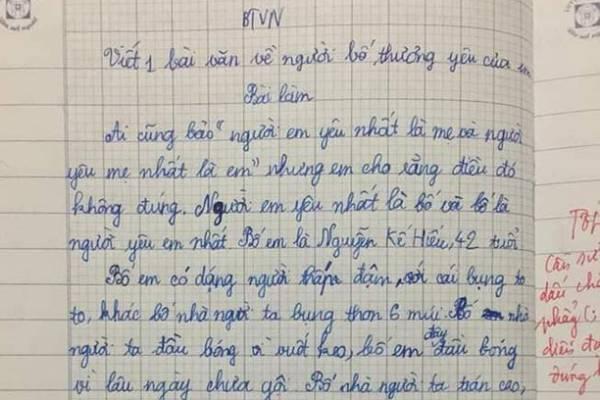 BTVN
Viết 1 bài văn về người bố thương yêu của em
Bài làm
Ai cũng bảo "người em yêu nhất là mẹ và người
yêu mẹ nhất là em" nhưng em cho rằng điều đó
không đúng. Người em yêu nhất là bố và bố là
người yêu em nhất Bố em là Nguyễn Kế Hiếu, 42 tuổi
Bố em có dáng người thấp đậm, với cái bụng to
to, khác bố nhà người ta bụng thon 6 múi. Bố nhà
người ta đầu bóng vì vuốt keo, bố em đây đầu bóng
vì lâu ngày chưa gội Bố nhà người ta trán cao,
Câu
dấu
phẩy (;
đúng